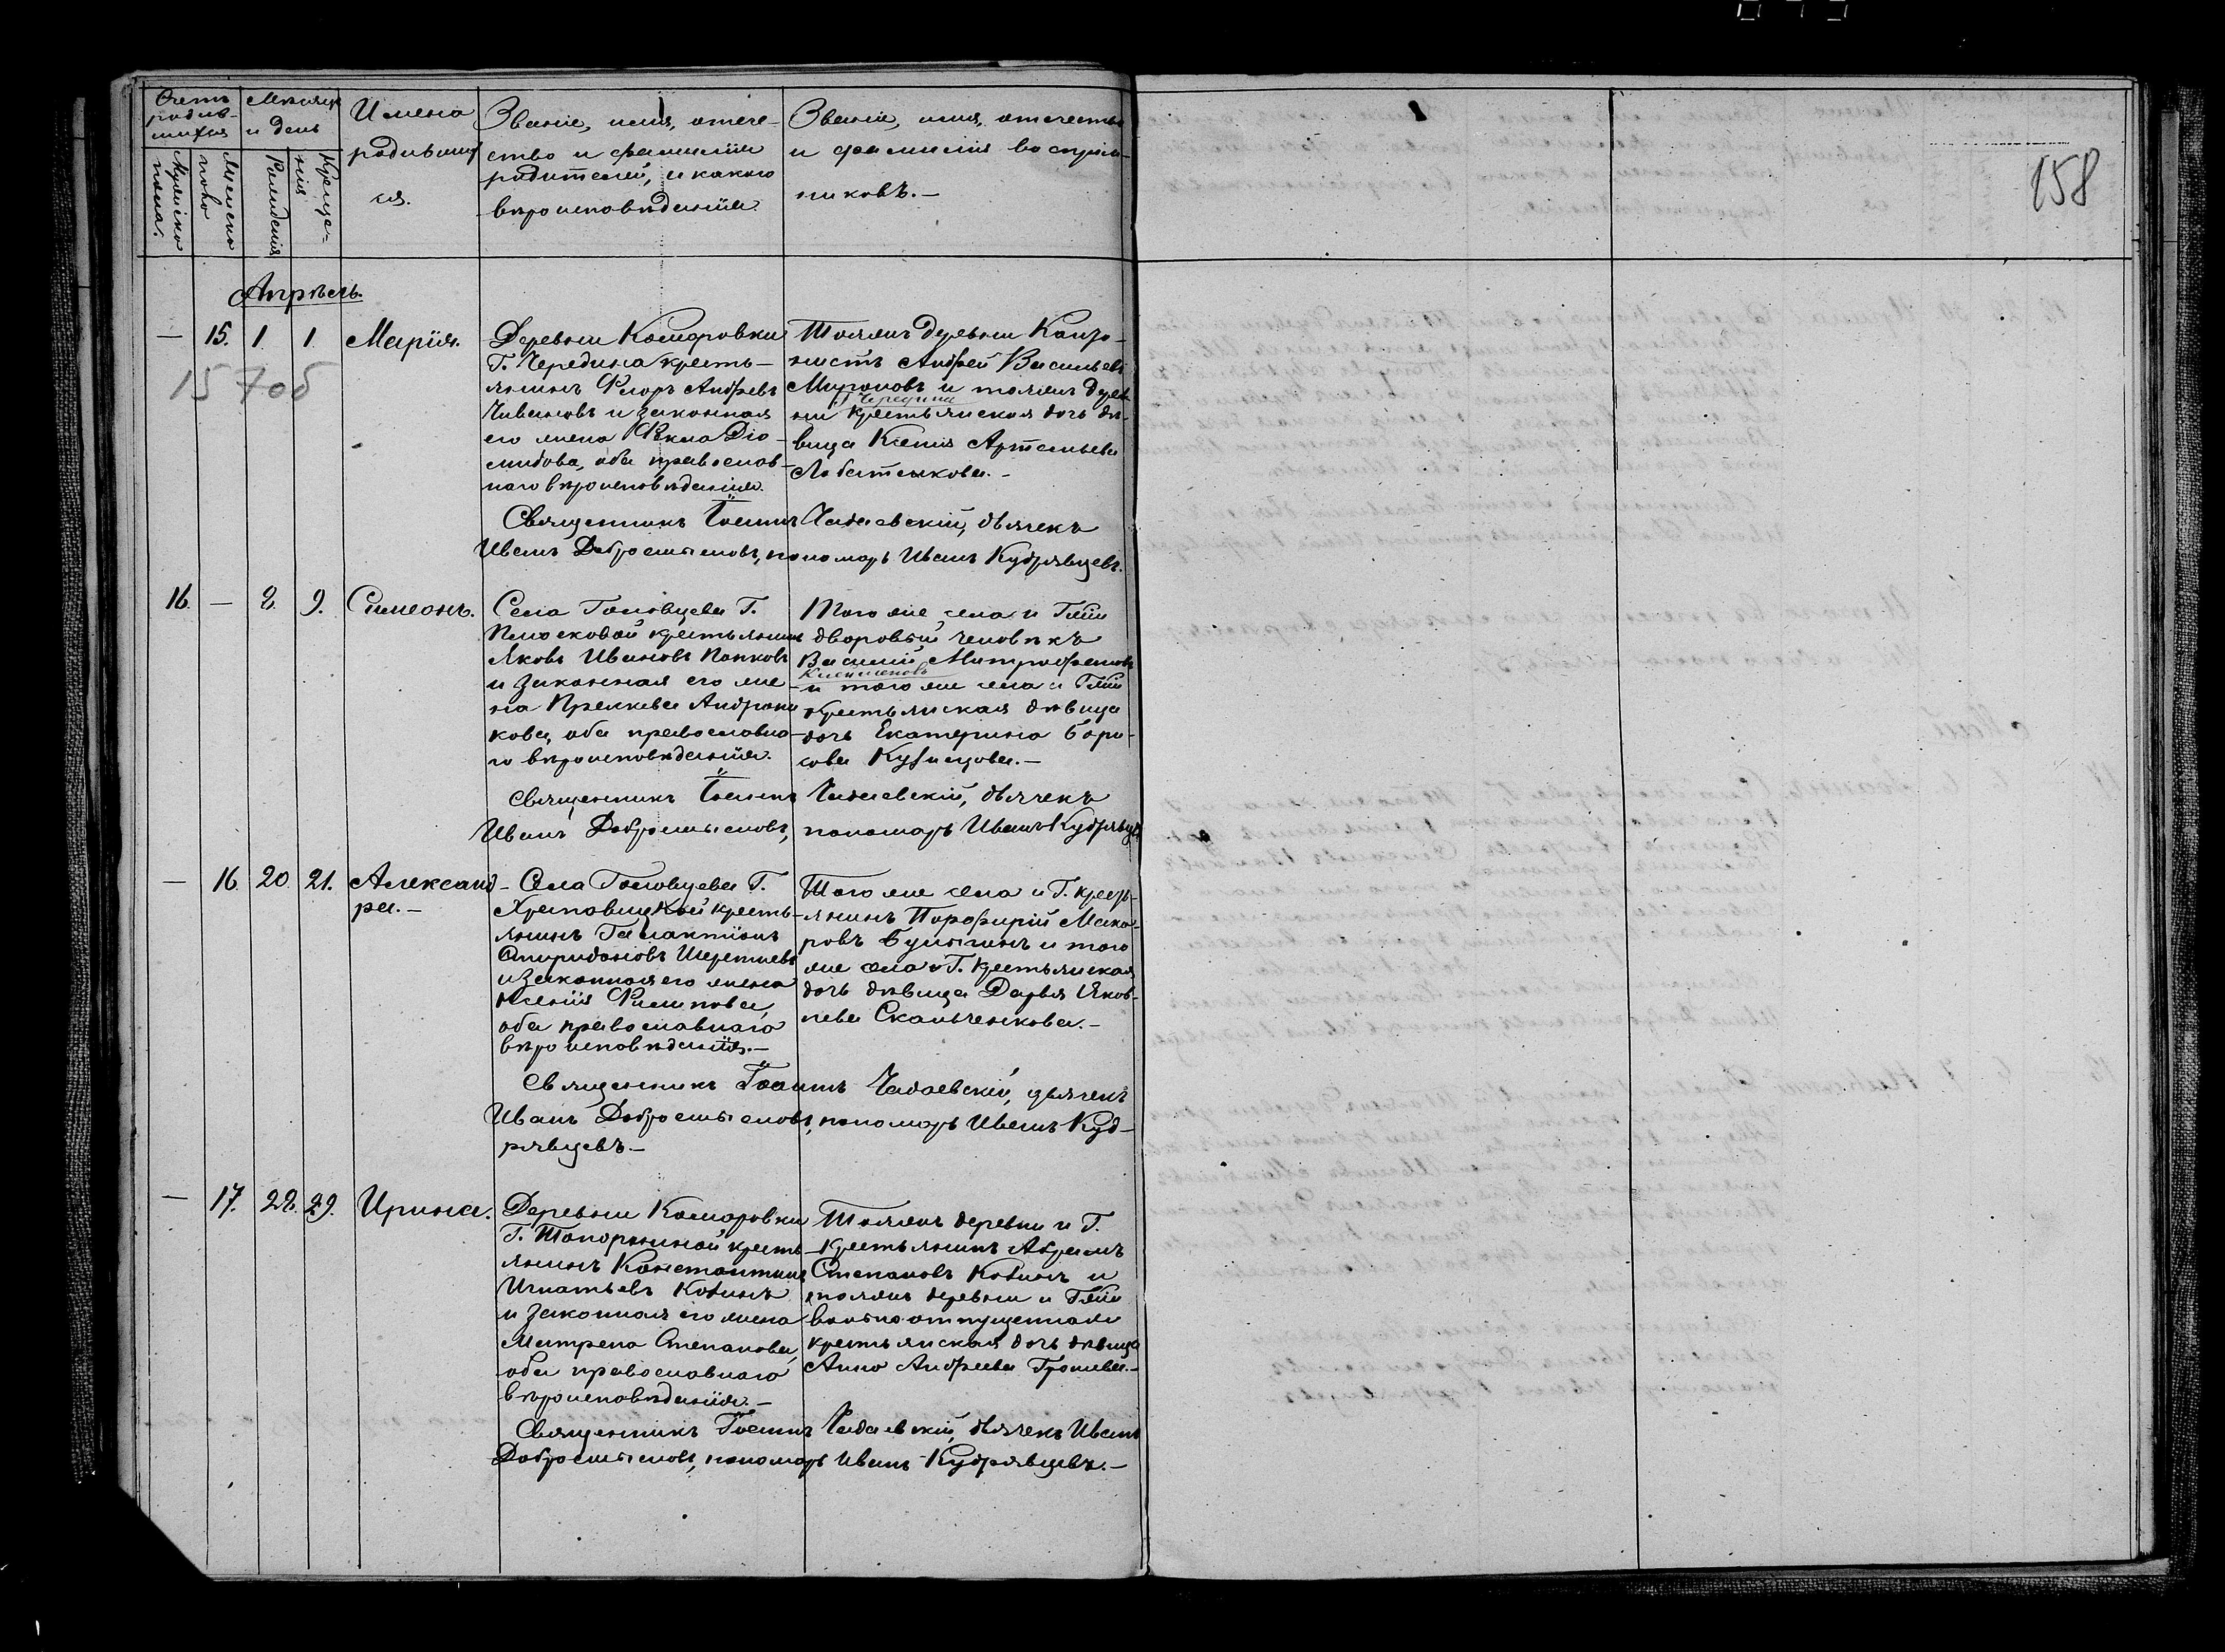 Счетъ
родив-
шихся
Мѣсяцъ
и день
Имена
родивших
ся.
Званіе, имя, отече-
ство и фамилія
родителей, и какого
вѣроисповѣданія.
Званіе, имя, отечество
и фамилія воспріем-
никовъ.—
Мужеска
пола.
Женска
Рожденія
Креще-
нія
158
Апрѣль.
— 15. 1. 1. Марія.
Деревни Комаровки
Г. Чередина кресть-
янинъ Флоръ Андревъ
Чивановъ и законная
его жена Ѳекла Діо-
мидова, оба православ-
наго вѣроисповѣданія.
Тояжъ деревни Канто-
нистъ Андрей Васильевъ
Мироновъ и тояжъ дерев-
Чередина
ни крестьянская дочь дѣ-
вица Ксенія Артемьева
Лобатенкова.—
15 7об
Священникъ Іоаннъ Чадаевскій, дьячекъ
Иванъ Добросмысловъ, пономарь Иванъ Кудрявцевъ.
16. — 8. 9. Симеонъ.
Села Головцева Г.
Плоcковой крестьянинъ
Яковъ Ивановъ Папковъ
и законная его же-
на Прасковья Андрони-
кова, оба православна-
го вѣроисповѣданія.
Того же села и Г-жи
дворовый человѣкъ
Василій Митрофановъ
и того же села и Г-жи
крестьянская дѣвица
дочь Екатерина Бори-
сова Кузнецова.—
Священникъ Іоаннъ Чадаевскій, дьячекъ
Иванъ Добросмысловъ, пономарь Иванъ Кудрявцевъ
— 16. 20. 21. Александ-
ра.—
Села Головцева Г.
Храповицкой кресть-
янинъ Галактіонъ
Спиридоновъ Шереметьевъ
и законная его жена
Ксенія Филипова,
оба православнаго
вѣроисповѣданія.—
Того же села и Г. кресть-
янинъ Порфирій Мака-
ровъ Булыгинъ и того
же села и Г. крестьянская
дочь дѣвица Дарья Яков-
лева Скальченкова.—
Священникъ Іоаннъ Чадаевскій, дьячекъ
Иванъ Добросмысловъ, пономарь Иванъ Куд-
рявцевъ.—
— 17. 28. 29. Ирина.
Деревни Комаровки
Г. Топорниной кресть-
янинъ Константинъ
Игнатьевъ Кобинъ
и законная его жена
Матрена Степанова,
оба православнаго
вѣроисповѣданія.—
Тояжъ деревни и Г.
крестьянинъ Абрамъ
Степановъ Кобинъ и
тояжъ деревни и Г-жи
вольноотпущенная
крестьянская дочь дѣвица
Анна Андреева Грошева.—
Священникъ Іоаннъ Чадаевскій, дьячекъ Иванъ
Добросмысловъ, пономарь Иванъ Кудрявцевъ.—